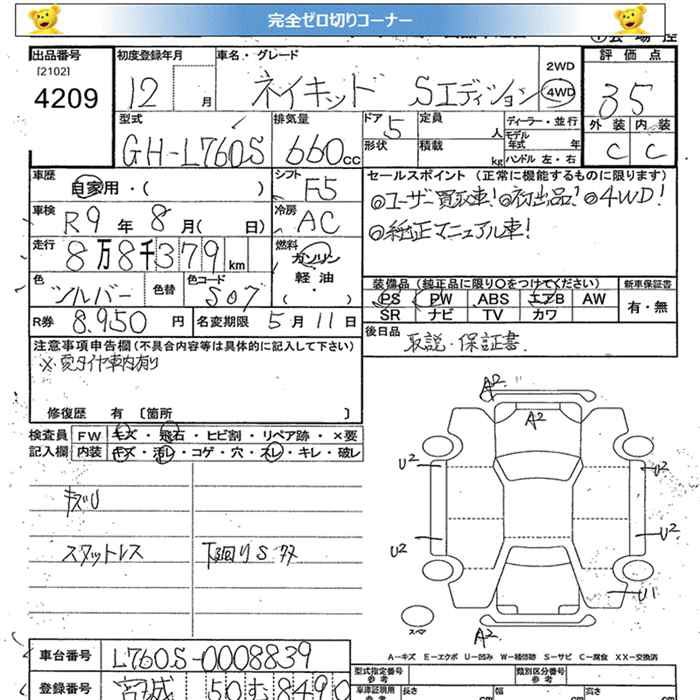 完全ゼロ切りコーナー
出品番号
[2102]
4209
初度登録年月
12 月
車名・グレード
ネイキッド Sエディション
2WD
4WD
評価点
3.5
外装 内装
C C
型式
GH-L760S
排気量
660cc
ドア
5
形状
定員
人
積載
kg
ディーラー・並行
モデル年式 年
ハンドル 左・右
車歴
自家用・( )
シフト
F5
車検
R9 年 8 月( 日)
冷房
AC
走行
8万8千379km
燃料
ガソリン
軽油
( )
色
シルバー
色替
色コード
S07
R券
8,950 円
名変期限
5月11日
セールスポイント (正常に機能するものに限ります)
◎ユーザー買取車!◎初出品!◎4WD!
◎純正マニュアル車!
装備品 (純正品に限り○をつけてください)
PS PW ABS エアB AW
SR ナビ TV カワ
新車保証書
有・無
後日品
取説・保証書
注意事項申告欄(不具合内容等は具体的に記入して下さい)
※夏タイヤ車内有り
修復歴 有 [箇所 ]
検査員 FW キズ・飛石・ヒビ割・リペア跡・×要
記入欄 内装 キズ・汚レ・コゲ・穴・スレ・キレ・破レ
キズU
スタットレス
下廻りS
A2
A2
U2
U2
U2
U2
U1
A2
A=キズ E=エクボ U=凹み W=補修跡 S=サビ C=腐食 XX=交換済
車台番号
L760S-0008839
登録番号
宮城 50 む 8490
型式指定番号
参考
類別区分番号
参考
車庫証明用
参考
長さ cm
幅 cm
高さ cm